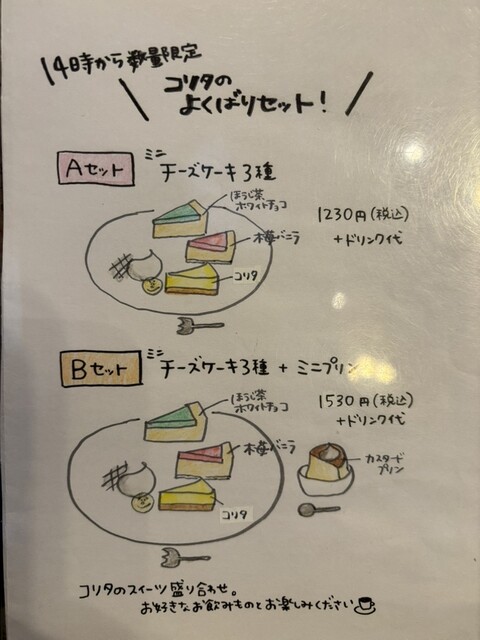 14時から数量限定
コリタの
よくばりセット!
Aセット
ミニ
チーズケーキ3種
ほうじ茶
ホワイトチョコ
木苺バニラ
コリタ
1230円(税込)
+ドリンク代
Bセット
ミニ
チーズケーキ3種 + ミニプリン
ほうじ茶
ホワイトチョコ
木苺バニラ
コリタ
1530円(税込)
+ドリンク代
カスタード
プリン
コリタのスイーツ盛り合わせ。
お好きなお飲みものとお楽しみください